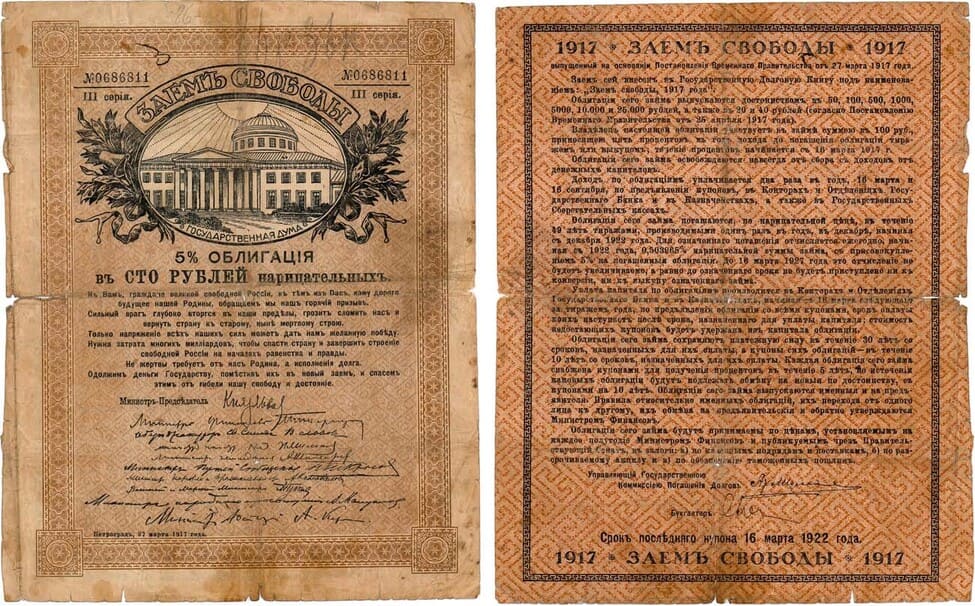 №0686811
№0686811
III серія.
III серія.
ЗАЕМЪ СВОБОДЫ
ГОСУДАРСТВЕННАЯ ДУМА
5% ОБЛИГАЦІЯ
въ СТО РУБЛЕЙ нарицательныхъ.
Къ Вамъ, граждане великой свободной Россіи, къ тѣмъ изъ Васъ, кому дорого
будущее нашей Родины, обращаемъ мы нашъ горячій призывъ.
Сильный врагъ глубоко вторгся въ наши предѣлы, грозитъ сломить насъ и
вернуть страну къ старому, нынѣ мертвому строю.
Только напряженіе всѣхъ нашихъ силъ можетъ дать намъ желанную побѣду.
Нужна затрата многихъ милліардовъ, чтобы спасти страну и завершить строеніе
свободной Россіи на началахъ равенства и правды.
Не жертвы требуетъ отъ насъ Родина, а исполненія долга.
Одолжимъ деньги Государству, помѣстивъ ихъ въ новый заемъ, и спасемъ
этимъ отъ гибели нашу свободу и достояніе.
Министръ-Предсѣдатель
Петроградъ, 27 марта 1917 года.
1917 * ЗАЕМЪ СВОБОДЫ * 1917
выпущенный на основаніи Постановленія Временнаго Правительства отъ 27 марта 1917 года.
Заемъ сей внесенъ въ Государственную Долговую Книгу подъ наименова-
ніемъ: „Заемъ свободы, 1917 года".
Облигаціи сего займа выпускаются достоинствомъ въ 50, 100, 500, 1000,
5000, 10.000 и 25.000 рублей, а также въ 20 и 40 рублей (согласно Постановленію
Временнаго Правительства отъ 25 апрѣля 1917 года).
Владѣлецъ настоящей облигаціи участвуетъ въ займѣ суммою въ 100 руб.,
приносящею пять процентовъ въ годъ дохода до погашенія облигаціи тира-
жемъ или выкупомъ; теченіе процентовъ начинается съ 16 марта 1917 г.
Облигаціи сего займа освобождаются навсегда отъ сбора съ доходовъ отъ
денежныхъ капиталовъ.
Доходъ по облигаціямъ уплачивается два раза въ годъ, 16 марта и
16 сентября, по предъявленіи купоновъ, въ Конторахъ и Отдѣленіяхъ Госу-
дарственнаго Банка и въ Казначействахъ, а также въ Государственныхъ
Сберегательныхъ кассахъ.
Облигаціи сего займа погашаются, по нарицательной цѣнѣ, въ теченіе
49 лѣтъ тиражами, производимыми одинъ разъ въ годъ, въ декабрѣ, начиная
съ декабря 1922 года. Для означеннаго погашенія отчисляется ежегодно, начи-
ная съ 1922 года, 0,503965% нарицательной суммы займа, съ присовокупле-
ніемъ 5% на погашенныя облигаціи. До 16 марта 1927 года это отчисленіе не
будетъ увеличиваемо, а равно до означеннаго срока не будетъ приступлено ни къ
конверсіи, ни къ выкупу означеннаго займа.
Уплата капитала по облигаціямъ производится въ Конторахъ и Отдѣленіяхъ
Государственнаго Банка и въ Казначействахъ, начиная съ 16 марта слѣдующаго
за тиражемъ года, по предъявленіи облигаціи со всѣми купонами, срокъ оплаты
коихъ наступаетъ послѣ срока, назначеннаго для уплаты капитала; стоимость
недостающихъ купоновъ будетъ удержана изъ капитала облигаціи.
Облигаціи сего займа сохраняютъ платежную силу въ теченіе 30 лѣтъ со
сроковъ, назначенныхъ для ихъ оплаты, а купоны сихъ облигацій—въ теченіе
10 лѣтъ со сроковъ, назначенныхъ для ихъ оплаты. Каждая облигація сего займа
снабжена купонами для полученія процентовъ въ теченіе 5 лѣтъ, по истеченіи
каковыхъ облигаціи будутъ подлежать обмѣну на новыя по достоинству, съ
купонами на 10 лѣтъ. Облигаціи сего займа выпускаются именныя и на предъ-
явителя. Правила относительно именныхъ облигацій, ихъ перехода отъ одного
лица къ другому, ихъ обмѣна на предъявительскія и обратно утверждаются
Министромъ Финансовъ.
Облигаціи сего займа будутъ принимаемы по цѣнамъ, устанавливаемымъ на
каждое полугодіе Министромъ Финансовъ и публикуемымъ чрезъ Правитель-
ствующій Сенатъ, въ залоги: а) по казеннымъ подрядамъ и поставкамъ, б) по раз-
срочиваемому акцизу и в) по обезпеченію таможенныхъ пошлинъ.
Управляющій Государственною
Коммиссіею Погашенія Долговъ
Бухгалтеръ
Срокъ послѣдняго купона 16 марта 1922 года.
1917 * ЗАЕМЪ СВОБОДЫ * 1917